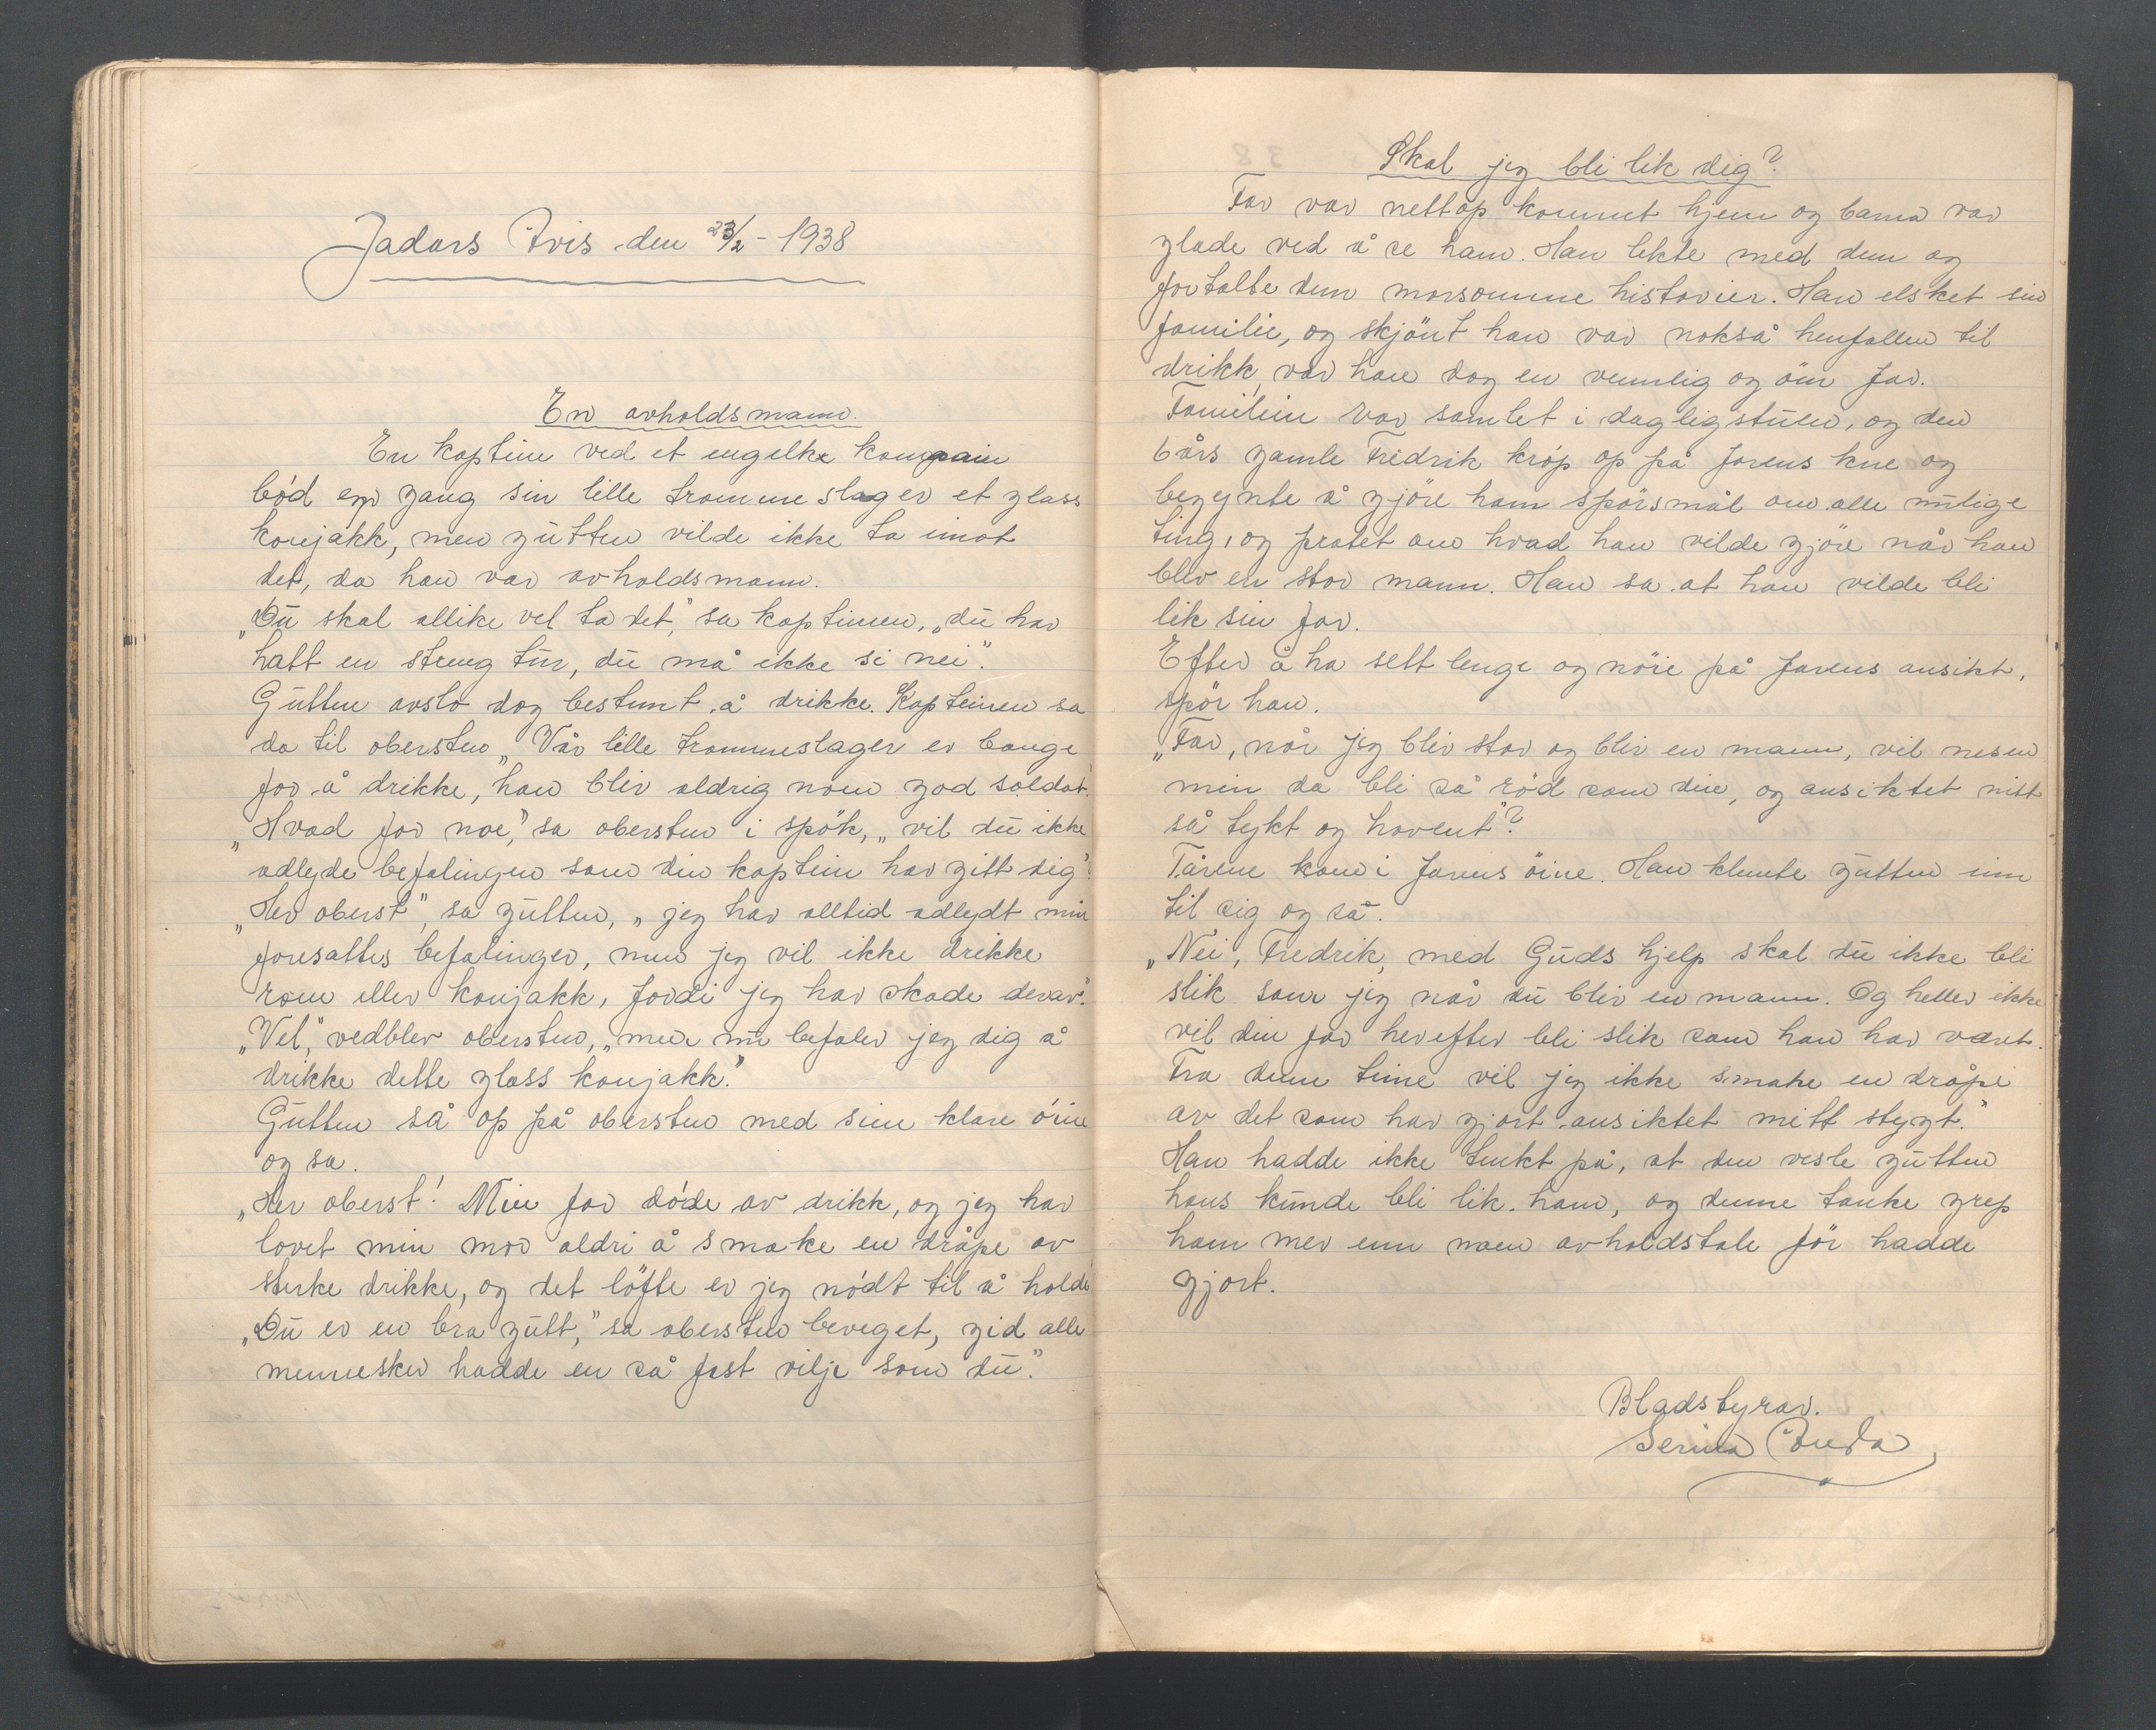 Jadars Avis den 23/2 - 1938
En avholdsmann.
En kaptein ved et engelke kompani
bød en gang sin lille trommeslager et glass
konjakk, men gutten vilde ikke ta imot
det, da han var avholdsmann.
„Du skal allike vel ta det", sa kapteinen, „du har
hatt en streng tur, du må ikke si nei".
Gutten avslo dog bestemt å drikke. Kapteinen sa
da til obersten „Vår lille trommeslager er bange
for å drikke, han blir aldrig noen god soldat."
„Hvad for noe," sa obersten i spøk, „vil du ikke
adlyde befalingen som din kaptein har gitt dig"?
„Her oberst", sa gutten, „jeg har alltid adlydt min
foresattes befalinger, men jeg vil ikke drikke
rom eller konjakk, fordi jeg har skade derav".
„Vel," vedblev obersten, „men nu befaler jeg dig å
drikke dette glass konjakk."
Gutten så op på obersten med sine klare øine
og sa.
„Her oberst! Min far døde av drikk, og jeg har
lovet min mor aldri å smake en dråpe av
sterke drikke, og det løfte er jeg nødt til å holde
„Du er en bra gutt," sa obersten beveget, gid alle
mennesker hadde en så fast vilje som du".
Skal jeg bli lik dig?
Far var nettop kommet hjem og barna var
glade ved å se ham. Han lekte med dem og
fortalte dem morsomme historier. Han elsket sin
familie, og skjønt han var nokså henfallen til
drikk, var han dog en vennlig og øm far.
Familien var samlet i dagligstuen, og den
6års gamle Fredrik krøp op på farens kne og
begynte å gjøre ham spørsmål om alle mulige
ting, og pratet om hvad han vilde gjøre når han
blev en stor mann. Han sa at han vilde bli
lik sin far.
Efter å ha sett lenge og nøie på farens ansikt,
spør han.
„Far, når jeg blir stor og blir en mann, vil nesen
min da bli så rød som din, og ansiktet mitt
så tykt og hovent"?
Tårene kom i farens øine. Han klemte gutten inn
til sig og sa.
„Nei, Fredrik, med Guds hjelp skal du ikke bli
slik som jeg når du blir en mann. Og heller ikke
vil din far herefter bli slik som han har været.
Fra denne time vil jeg ikke smake en dråpe
av det som har gjort ansiktet mitt stygt."
Han hadde ikke tenkt på, at den vesle gutten
hans kunde bli lik ham, og denne tanke grep
ham mer enn noen avholdstale før hadde
gjort.
Bladstyrar.
Serina